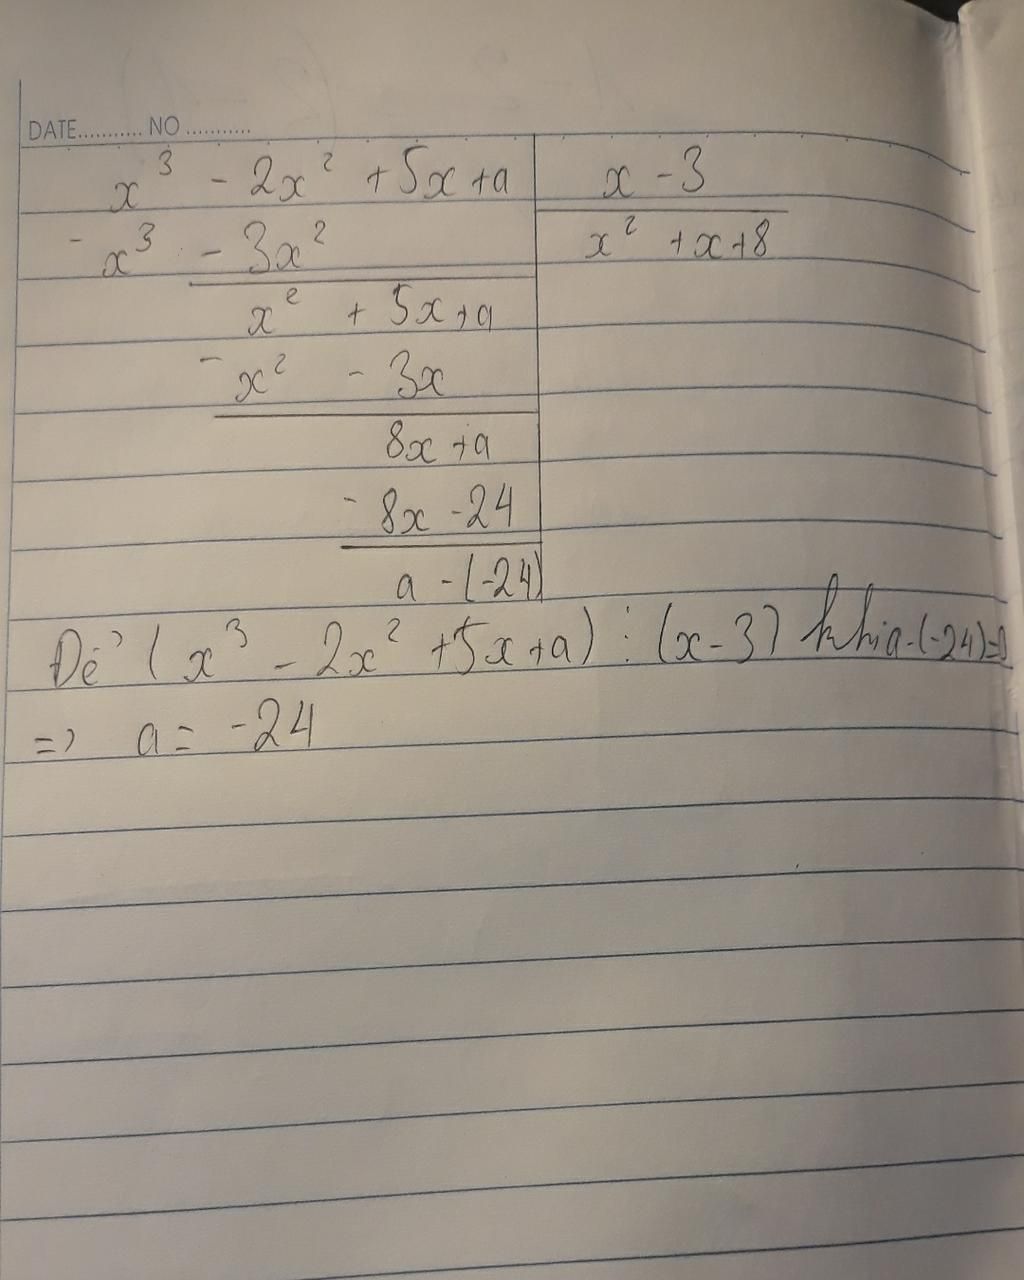 DATE........... NO ...........
x³ - 2x² + 5x + a
x - 3
- x³ - 3x²
x² + x + 8
x² + 5x + a
- x² - 3x
8x + a
- 8x - 24
a - (-24)
Để (x³ - 2x² + 5x + a) ⋮ (x - 3) khi a - (-24) = 0
=> a = -24